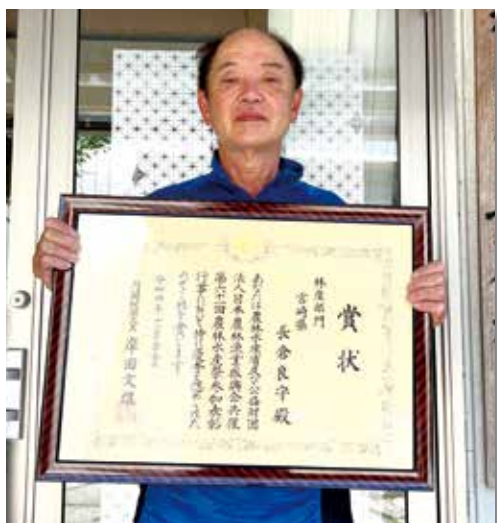 賞状
林産部門
宮崎県
長倉良守殿
あなたは農林水産省及び公益財団
法人日本農林漁業振興会共催
第六十一回農林水産祭参加表彰
行事において特に優秀な
内閣総理大臣 岸田文雄